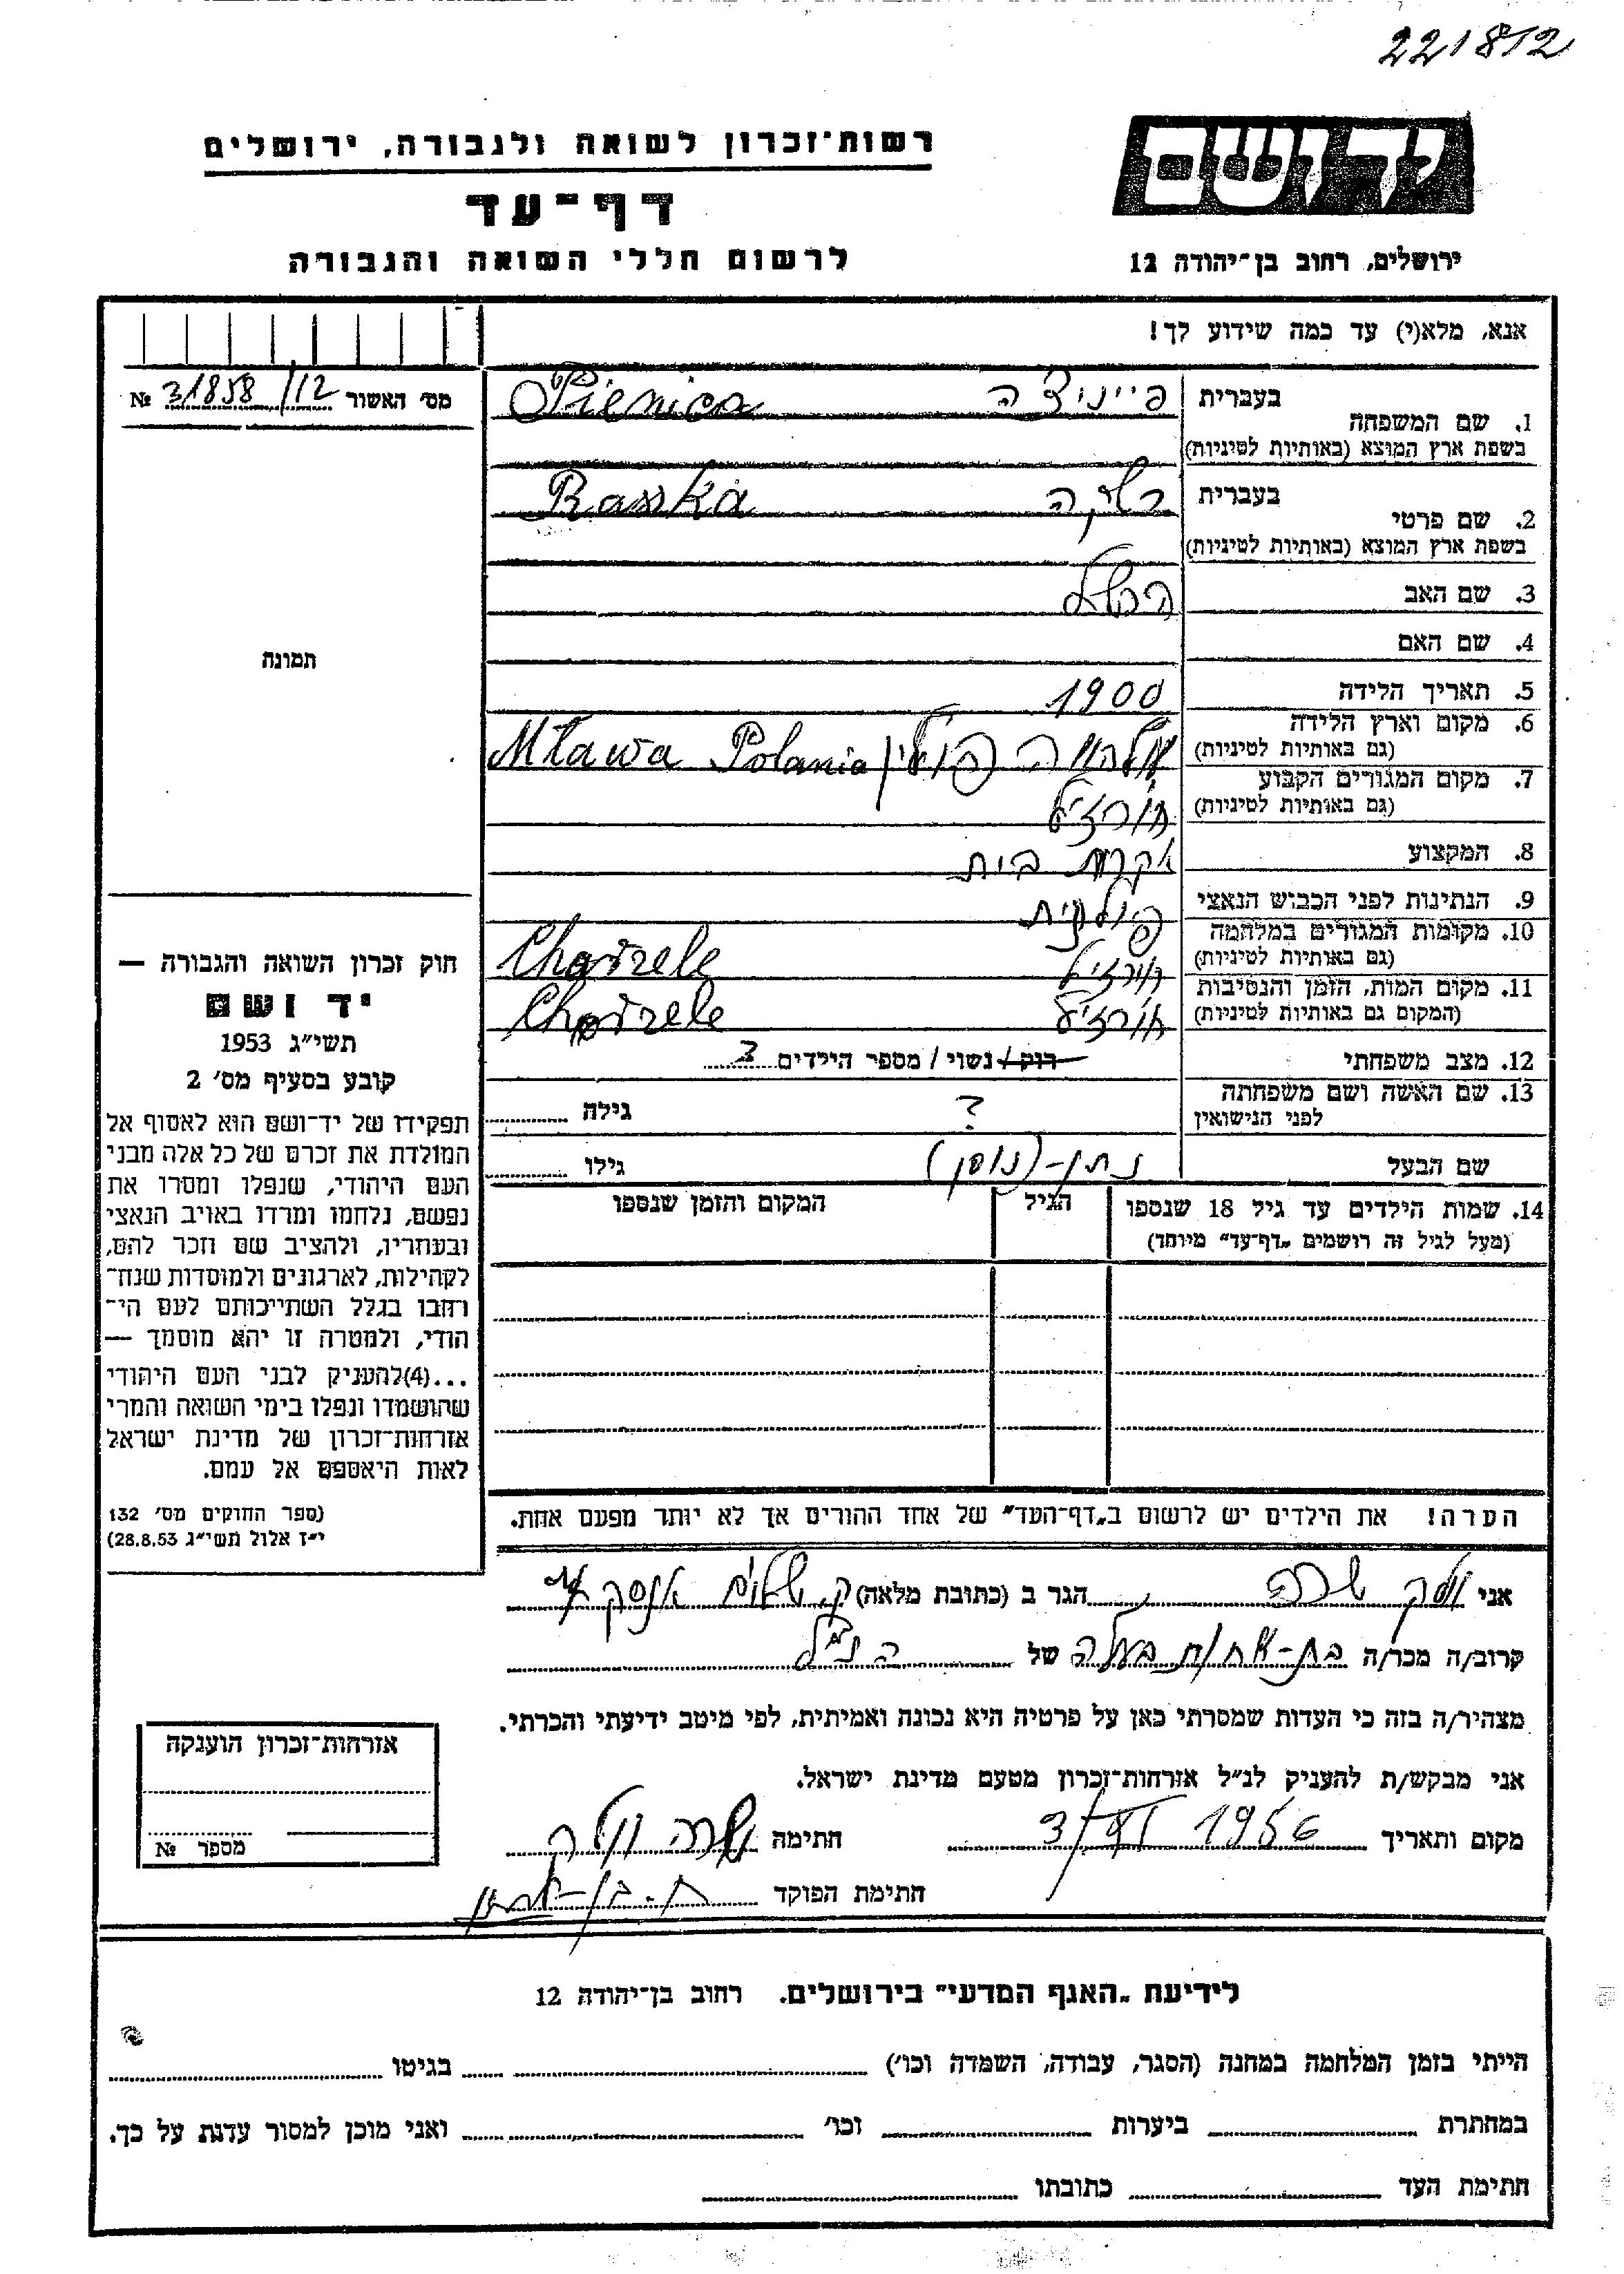 221812
יד ושם
רשות־זכרון לשואה ולגבורה, ירושלים
דף־עד
לרשום חללי השואה והגבורה
ירושלים, רחוב בן־יהודה 12
אנא, מלא(י) עד כמה שידוע לך!
מס׳ האשור 31858/12 №
1. שם המשפחה בעברית פייניצ׳ה Pienica
בשפת ארץ המוצא (באותיות לטיניות)
2. שם פרטי בעברית רשקה Rasska
בשפת ארץ המוצא (באותיות לטיניות)
3. שם האב
4. שם האם
5. תאריך הלידה 1900
6. מקום וארץ הלידה פולין Mława Polania
(גם באותיות לטיניות)
7. מקום המגורים הקבוע חורז׳יל
(גם באותיות לטיניות)
8. המקצוע עקרת בית
9. הנתינות לפני הכבוש הנאצי פולנית
10. מקומות המגורים במלחמה חורז׳יל Chorzele
(גם באותיות לטיניות)
11. מקום המות, הזמן והנסיבות חורז׳יל Chorzele
(המקום גם באותיות לטיניות)
12. מצב משפחתי רוק / נשוי / מספר הילדים 3
13. שם האשה ושם משפחתה לפני הנישואין ? גילה
שם הבעל נתן-(נוסן) גילו
14. שמות הילדים עד גיל 18 שנספו הגיל המקום והזמן שנספו
(מעל לגיל זה רושמים „דף־עד״ מיוחד)
הערה! את הילדים יש לרשום ב„דף־העד״ של אחד ההורים אך לא יותר מפעם אחת.
תמונה
חוק זכרון השואה והגבורה —
יד ושם
תשי״ג 1953
קובע בסעיף מס׳ 2
תפקידו של יד־ושם הוא לאסוף אל
המולדת את זכרם של כל אלה מבני
העם היהודי, שנפלו ומסרו את
נפשם, נלחמו ומרדו באויב הנאצי
ובעוזריו, ולהציב שם וזכר להם,
לקהילות, לארגונים ולמוסדות שנח־
רחבו בגלל השתייכותם לעם הי־
הודי, ולמטרה זו יהא מוסמך —
...(4)להעניק לבני העם היהודי
שהושמדו ונפלו בימי השואה והמרי
אזרחות־זכרון של מדינת ישראל
לאות היאספם אל עמם.
(ספר החוקים מס׳ 132
י״ז אלול תשי״ג 28.8.53)
אני שרה הגר ב (כתובת מלאה)
קרוב/ה מכר/ה בת-אחות בעלה של הנ״ל
מצהיר/ה בזה כי העדות שמסרתי כאן על פרטיה היא נכונה ואמיתית, לפי מיטב ידיעתי והכרתי.
אני מבקש/ת להעניק לנ״ל אזרחות־זכרון מטעם מדינת ישראל.
מקום ותאריך 3/VI 1956 חתימה שרה
חתימת הפוקד
אזרחות־זכרון הוענקה
מספר №
לידיעת „האגף המדעי״ בירושלים. רחוב בן־יהודה 12
הייתי בזמן המלחמה במחנה (הסגר, עבודה, השמדה וכו׳) בגיטו
במחתרת ביערות וכו׳ ואני מוכן למסור עדות על כך.
חתימת העד כתובתו